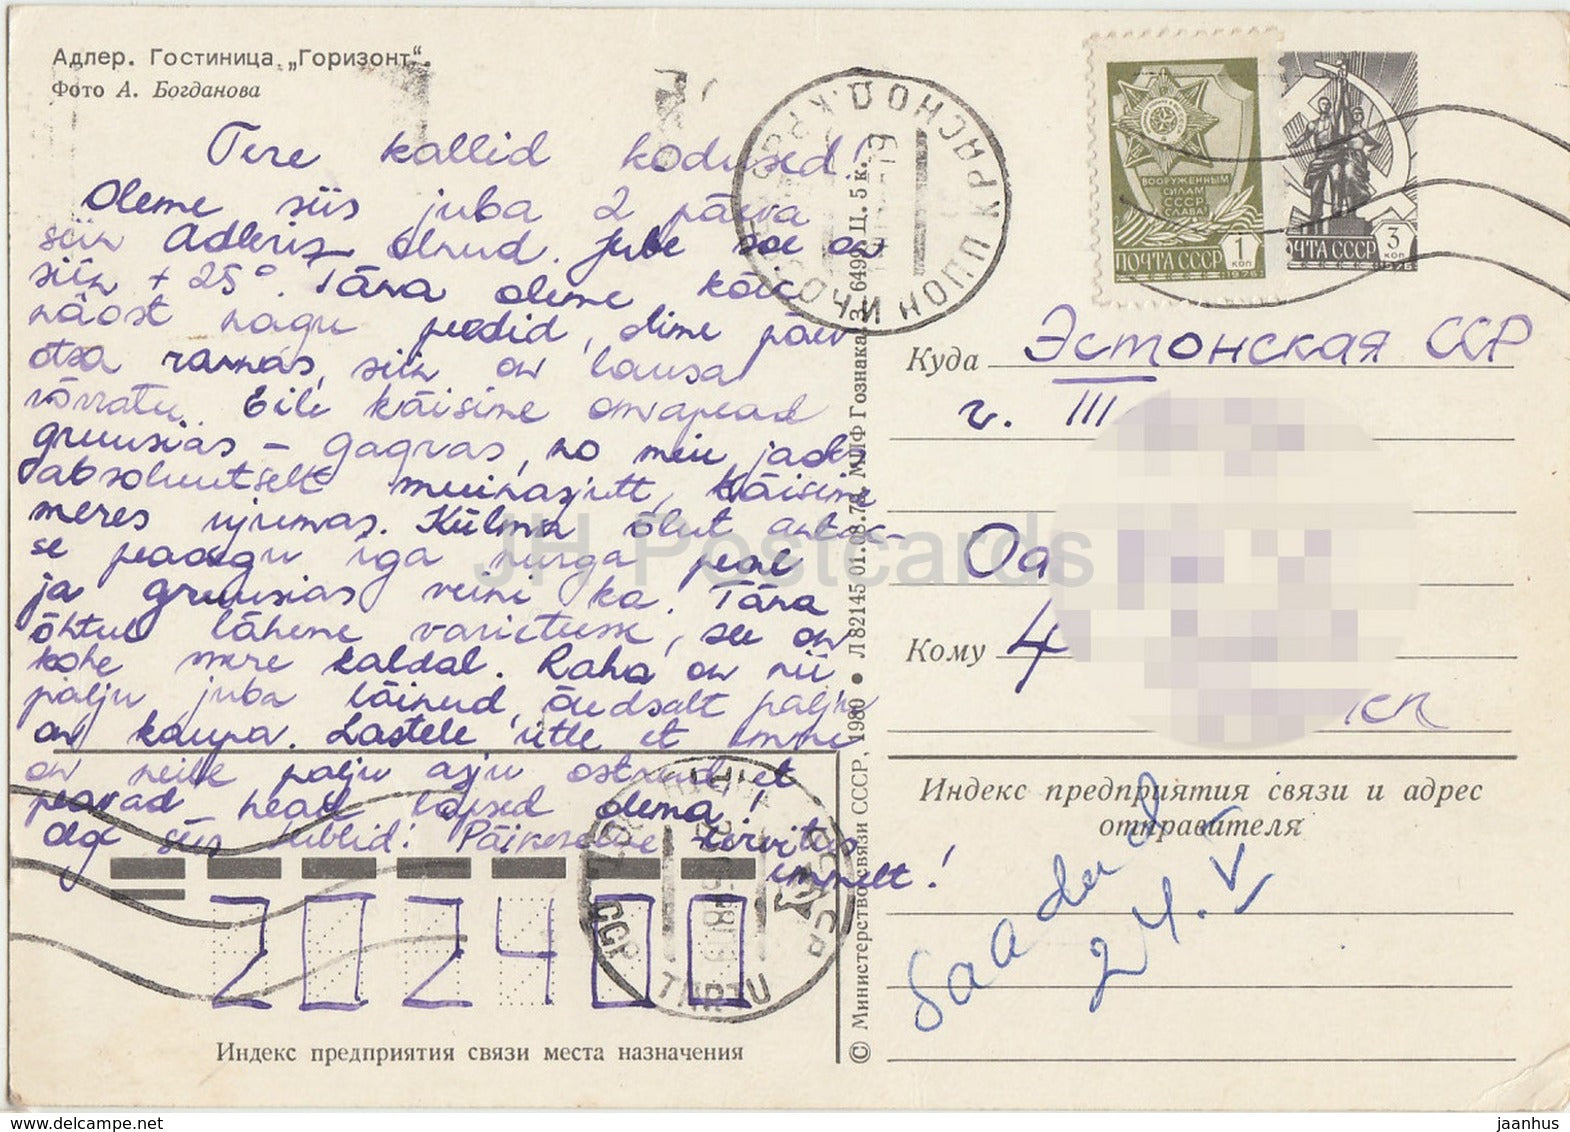 Адлер. Гостиница „Горизонт“.
Фото А. Богданова
Tere kallid kodused!
Oleme siis juba 2 päeva
siin Adleris olnud. Juba soe on
siin + 25°. Täna oleme kõik
näost nagu peedid, olime päev
otsa rannas, siin on lausa
võrratu. Eile käisime omapead
gruusias - gagras, no meil jadi
absoluutselt muinasjutt, käisime
meres ujumas. Külma õlut antak-
se peaaegu iga nurga peal
ja gruusias veini ka. Täna
õhtul läheme varieteesse, see on
kohe mere kaldal. Raha on nii
palju juba läinud, õudselt palju
on kaupa. Lastele ütle et emme
on neile palju asju ostnud et
peavad head lapsed olema!
Olge siis tublid! Päikeseline tervitus
emmelt!
ПОЧТА СССР
ВООРУЖЕННЫМ СИЛАМ СССР СЛАВА!
1 КОП
1976
ПОЧТА СССР
3 КОП
1976
КРАСНОД. КР.
TARTU
Куда Эстонская ССР
г. III
Оа
Кому 4
Индекс предприятия связи и адрес
отправителя
Saadud
24. V
202400
Индекс предприятия связи места назначения
© Министерство связи СССР, 1980 • Л 82145 01.08.79. МПФ Гознака. З. 6499 Ц. 5 к.
JH Postcards
www.delcampe.net
jaanhus